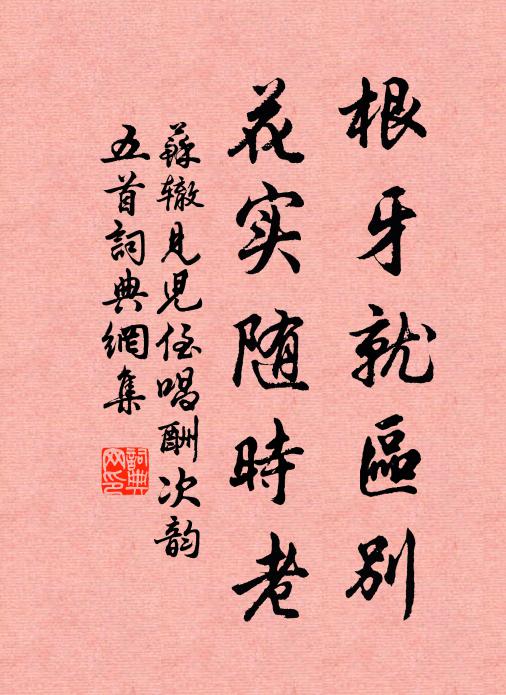 根牙就區别
花实随時老
蘇辙見児侄唱酬次韵
五首詞典網集
詞典
网印